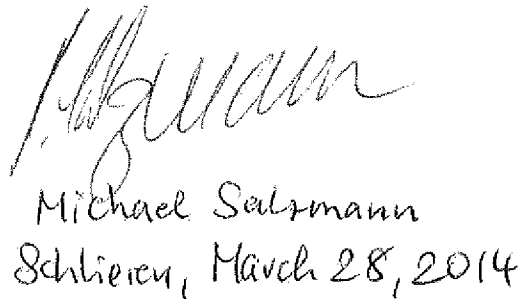 Michael Salzmann
Schlieren, March 28, 2014